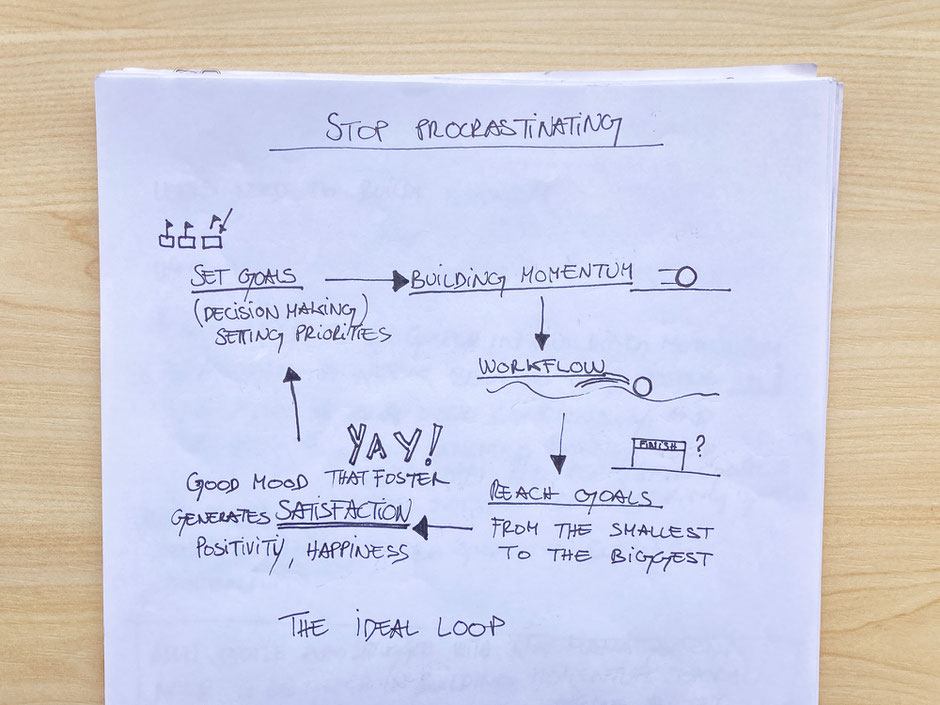 STOP PROCRASTINATING
SET GOALS
(DECISION MAKING)
SETTING PRIORITIES
BUILDING MOMENTUM
WORKFLOW
FINISH ?
REACH GOALS
FROM THE SMALLEST
TO THE BIGGEST
YAY!
GOOD MOOD THAT FOSTER
GENERATES SATISFACTION
POSITIVITY, HAPPINESS
THE IDEAL LOOP